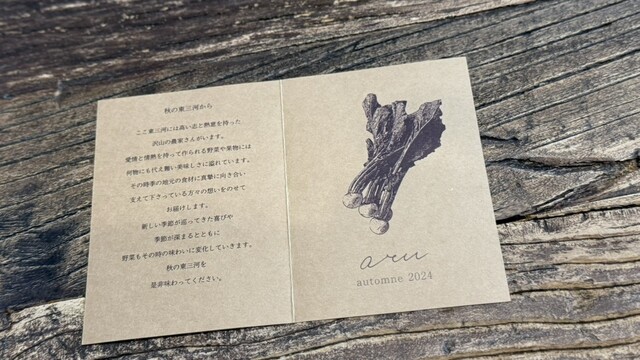 秋の東三河から
ここ東三河には高い志と熱意を持った
沢山の農家さんがいます。
愛情と情熱を持って作られる野菜や果物には
何物にも代え難い美味しさに溢れています。
その時季の地元の食材に真摯に向き合い
支えて下さっている方々の想いをのせて
お届けします。
新しい季節が巡ってきた喜びや
季節が深まるとともに
野菜もその時の味わいに変化していきます。
秋の東三河を
是非味わってください。
aru
automne 2024